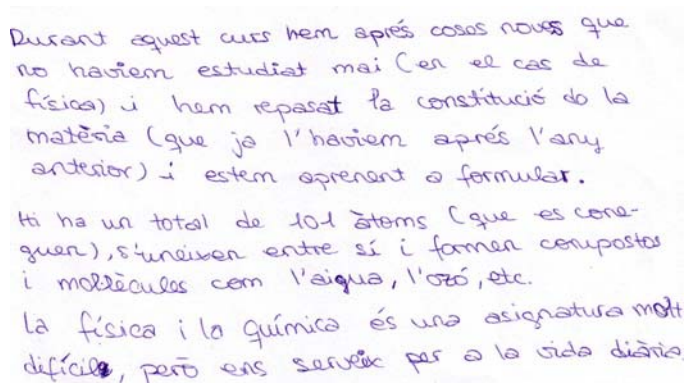 Durant aquest curs hem aprés coses noves que
no haviem estudiat mai (en el cas de
física) i hem repasat la constitució de la
matèria (que ja l'haviem aprés l'any
anterior) i estem aprenent a formular.
Hi ha un total de 101 àtoms (que es cone-
guen), s'uneixen entre sí i formen compostos
i molècules com l'aigua, l'ozó, etc.
La física i la química és una asignatura molt
difícil, però ens serveix per a la vida diària.